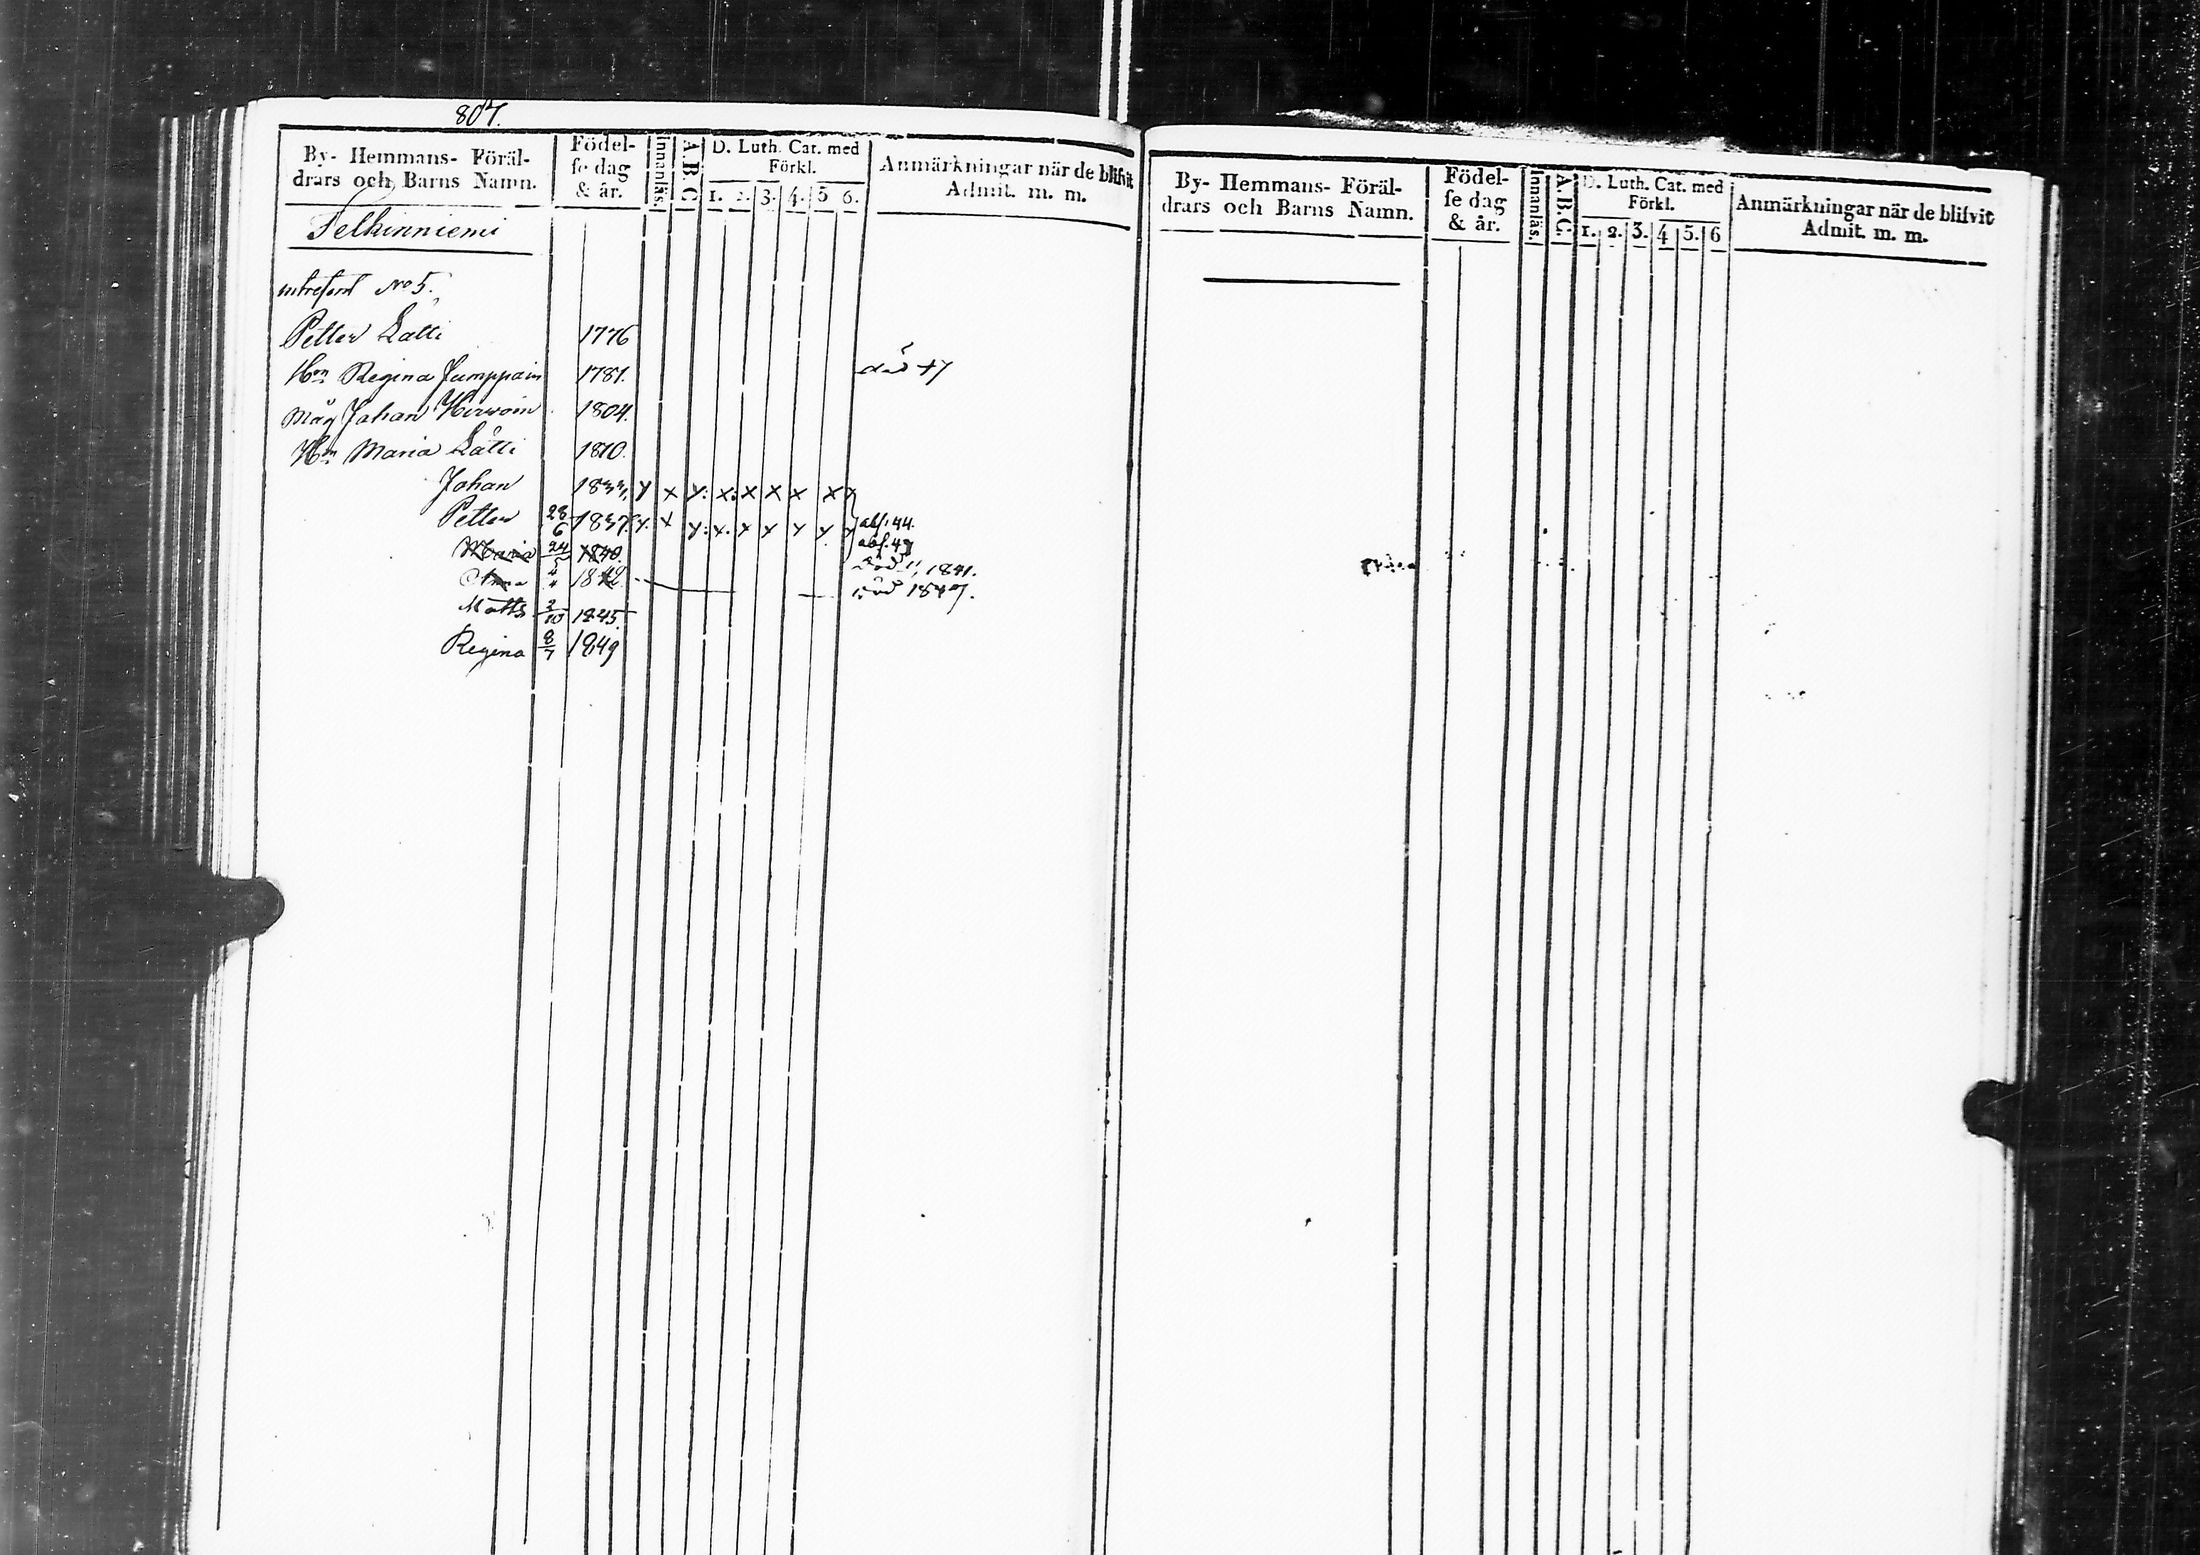 807.
By- Hemmans- Föräl-
drars och Barns Namn.
Födel-
se dag
& år.
Innanläs.
A.B.C.
D. Luth. Cat. med
Förkl.
1. 2. 3. 4. 5 6.
Anmärkningar när de blifvit
Admit. m. m.
Selkinniemi
No 5.
Petter Lätti 1776
Hn Regina Jumppain 1781. död 47
Måg Johan Hirvoin 1804.
Hn Maria Lätti 1810.
Johan 1833, y x y: x: x x x x x
Petter 28/6 1837. y. x y: x. x y y y y abs: 44.
abs. 47
Maria 24/5 1840. död 1841.
Anna 4/4 1842. död 1847.
Matts 2/10 1845.
Regina 8/7 1849
By- Hemmans- Föräl-
drars och Barns Namn.
Födel-
se dag
& år.
Innanläs.
A.B.C.
D. Luth. Cat. med
Förkl.
1. 2. 3. 4 5. 6
Anmärkningar när de blifvit
Admit. m. m.